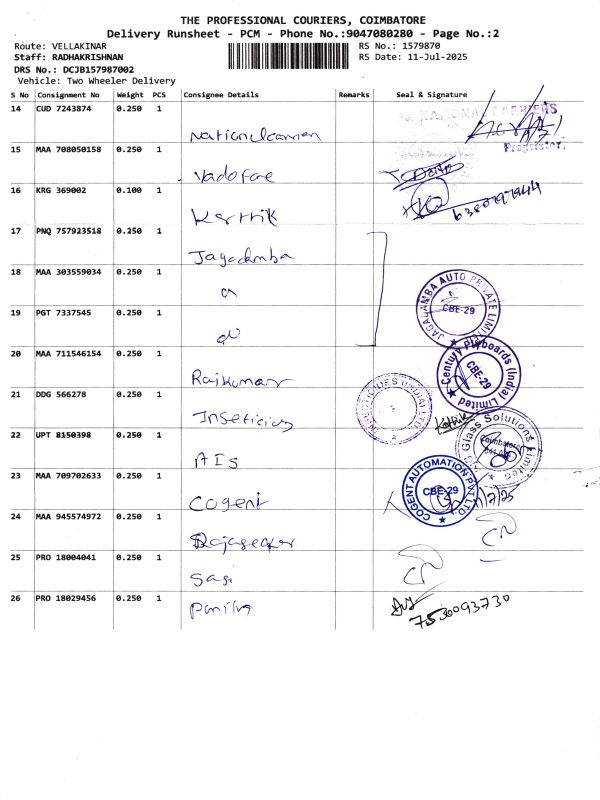 THE PROFESSIONAL COURIERS, COIMBATORE
Delivery Runsheet - PCM - Phone No.:9047080280 - Page No.:2
Route: VELLAKINAR
RS No.: 1579870
Staff: RADHAKRISHNAN
RS Date: 11-Jul-2025
DRS No.: DCJB157987002
Vehicle: Two Wheeler Delivery
S No Consignment No Weight PCS Consignee Details Remarks Seal & Signature
14 CUD 7243874 0.250 1
NATIONAL CARRIERS
Proprietor
15 MAA 708050158 0.250 1
Vadofone
16 KRG 369002 0.100 1
Karthik
17 PNQ 757923518 0.250 1
Jagadamba
18 MAA 303559034 0.250 1
JAGADAMBA AUTO PRIVATE LIMITED
CBE-29
19 PGT 7337545 0.250 1
20 MAA 711546154 0.250 1
Rajkumar
Century Plyboards (India) Limited
CBE-29
21 DDG 566278 0.250 1
Inseticids
INSECTICIDES (INDIA) LTD.
22 UPT 8150398 0.250 1
AIS
Glass Solutions Limited
Coimbatore
23 MAA 709702633 0.250 1
Cogent
COGENT AUTOMATION PVT LTD
CBE-29
24 MAA 945574972 0.250 1
Rajasekar
25 PRO 18004041 0.250 1
Sagi
26 PRO 18029456 0.250 1